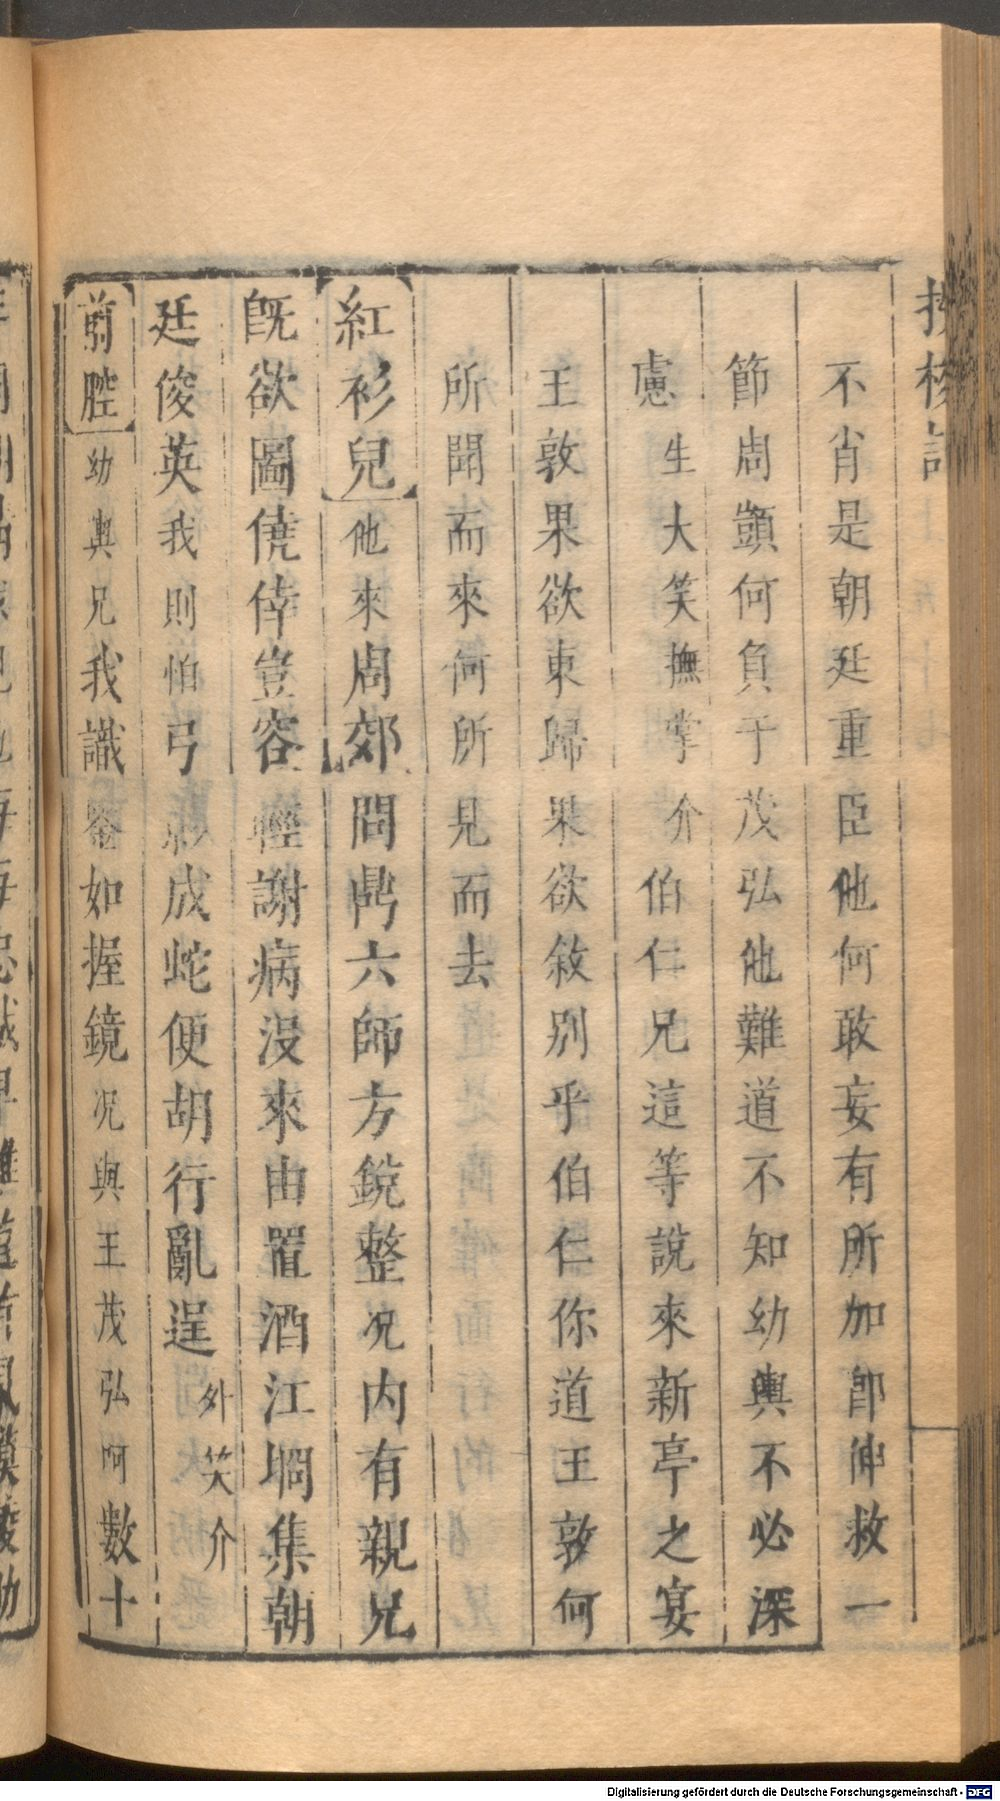 投梭記
不肖是朝廷重臣他何敢妄有所加卽伸救一
節周顗何負于茂弘他難道不知幼輿不必深
慮 生大笑撫掌介 伯仁兄這等說來新亭之宴
王敦果欲東歸果欲敘別乎伯仁你道王敦何
所聞而來何所見而去
紅衫兒 他來周郊問鼎六師方銳整况內有親兄
旣欲圖僥倖豈容輕謝病沒來由置酒江堈集朝
廷俊英我則怕弓影成蛇便胡行亂逞 外笑介
前腔 幼輿兄我識鑒如握鏡况與王茂弘呵數十
Digitalisierung gefördert durch die Deutsche Forschungsgemeinschaft - DFG